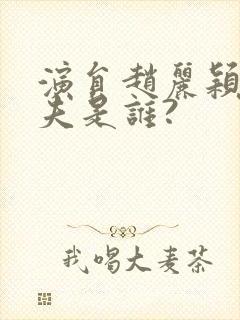 演員趙麗穎
夫是誰?
我喝大麦茶